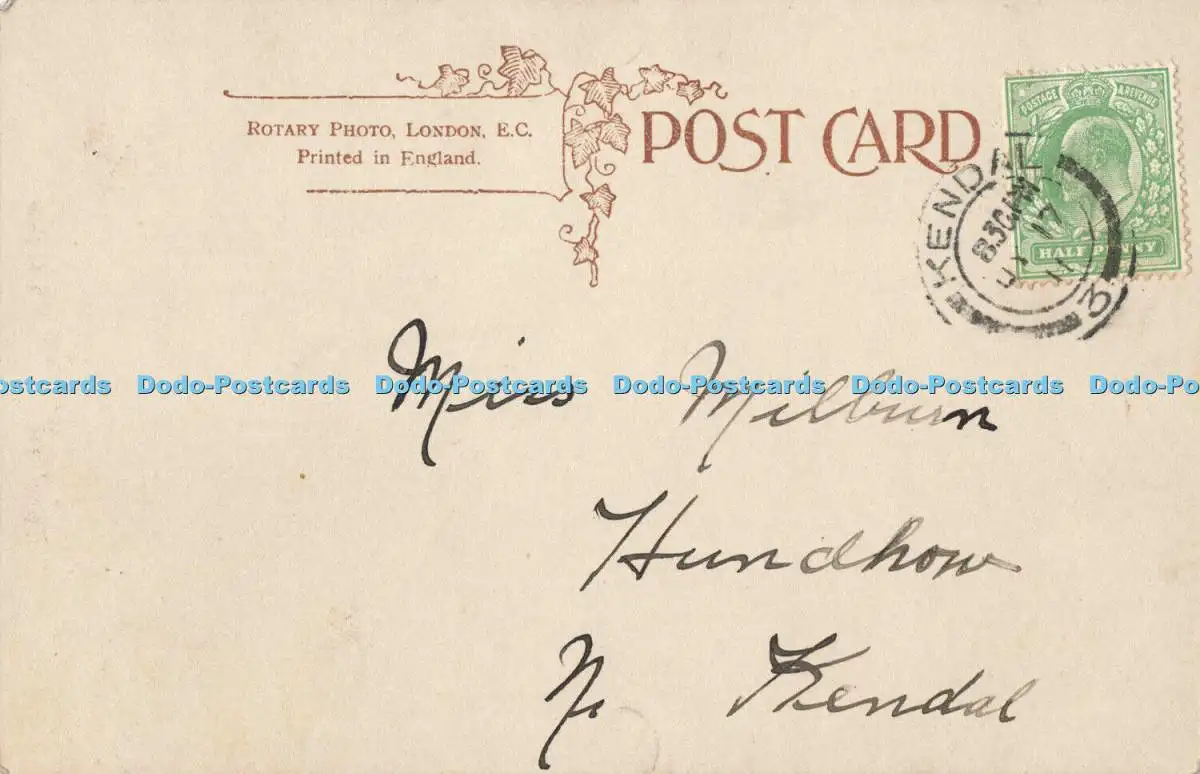 ROTARY PHOTO, LONDON, E.C.
Printed in England.
POST CARD
POSTAGE & REVENUE
HALF PENNY
KENDAL
8 30 PM
17
11
3
Miss Milburn
ostcards Dodo-Postcards Dodo-Postcards Dodo-Postcards Dodo-Postcards Dodo-Po
Hundhow
Nr Kendal